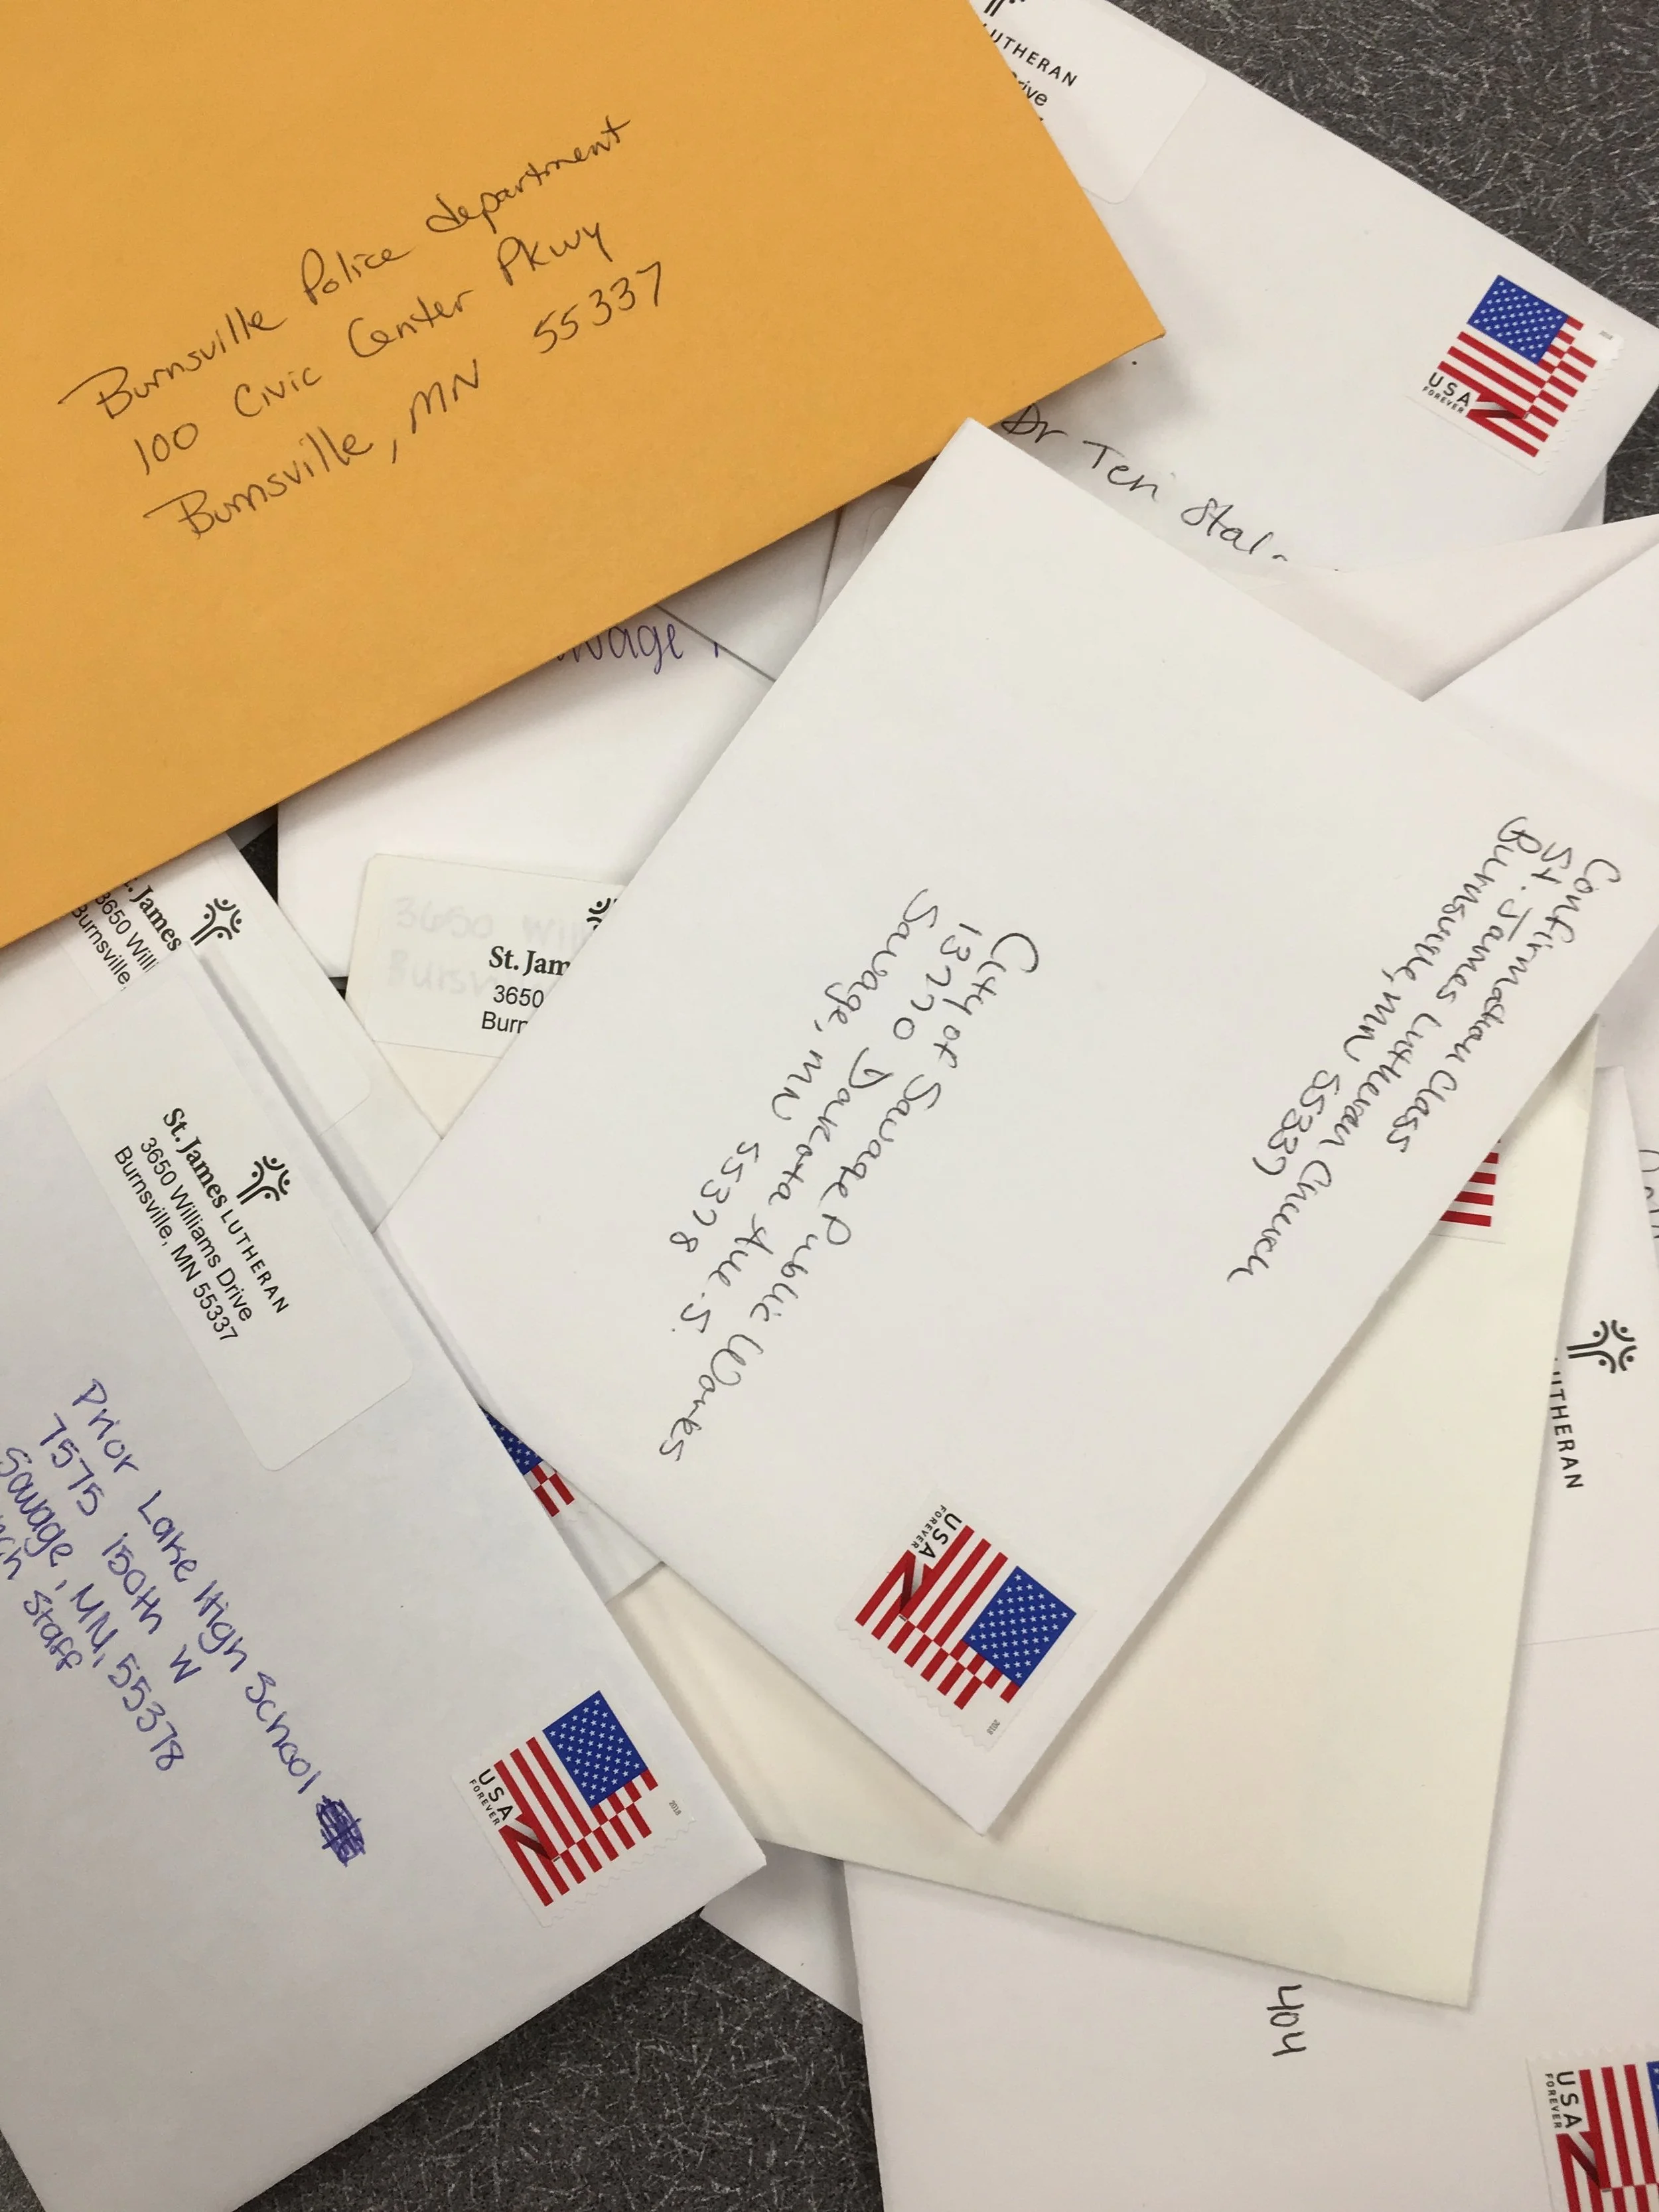 Burnsville Police department
100 Civic Center Pkwy
Burnsville, MN 55337
UTHERAN
Drive
USA
FOREVER
Dr Teri Stal
wage
St. James
3650 Willi
Burnsville,
3650 Will
Burnsv
St. Jam
3650
Burn
Confirmation Class
St. James Lutheran Church
Burnsville, MN 55337
City of Savage Public Works
13770 Dakota Ave. S.
Savage, MN 55378
USA
FOREVER
2018
St. James LUTHERAN
3650 Williams Drive
Burnsville, MN 55337
Prior Lake High School
7575 150th W
Savage, MN, 55378
ch Staff
USA
FOREVER
2018
UTHERAN
404
USA
FOREVER